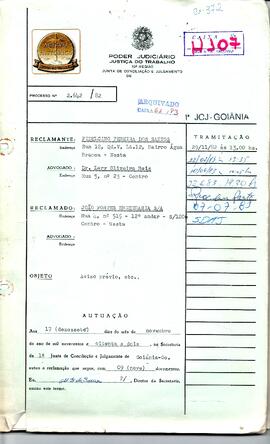 CAIXA
PODER JUDICIÁRIO
JUSTIÇA DO TRABALHO
10ª REGIÃO
JUNTA DE CONCILIAÇÃO E JULGAMENTO
DE
PROCESSO Nº 2.642 /82
ARQUIVADO
CAIXA
1ª JCJ-GOIÂNIA
RECLAMANTE:
Endereço Rua 18, Qd.V, Lt.12, Bairro Água
Branca - Nesta
TRAMITAÇÃO
29/11/82 às 13,00 hs.
ADVOGADO: Dr. Lery Oliveira Reis
Endereço Rua 3, nº 23 - Centro -
Nesta
RECLAMADO: JOÃO FORTES ENGENHARIA S/A
Endereço Rua 4, nº 515 - 12º andar - S/120
Centro - Nesta
ADVOGADO:
Endereço
OBJETO Aviso prévio, etc.
AUTUAÇÃO
Aos 17 (dezessete) dias do mês de novembro
do ano de mil novecentos e oitenta e dois, na Secretaria
da 1ª Junta de Conciliação e Julgamento de Goiânia-Go.
autuo a reclamação que segue, com 09 (nove) documentos.
Eu, Diretor da Secretaria,
assino este termo.